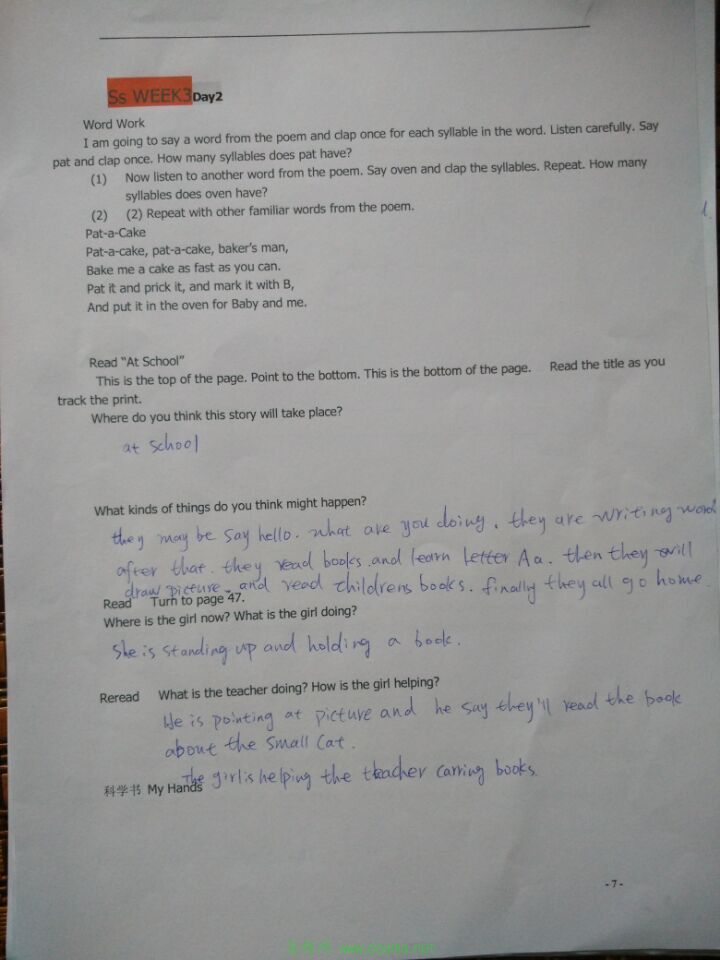 Ss WEEK3Day2
Word Work
I am going to say a word from the poem and clap once for each syllable in the word. Listen carefully. Say
pat and clap once. How many syllables does pat have?
(1) Now listen to another word from the poem. Say oven and clap the syllables. Repeat. How many
syllables does oven have?
(2) (2) Repeat with other familiar words from the poem.
Pat-a-Cake
Pat-a-cake, pat-a-cake, baker's man,
Bake me a cake as fast as you can.
Pat it and prick it, and mark it with B,
And put it in the oven for Baby and me.
Read "At School"
This is the top of the page. Point to the bottom. This is the bottom of the page. Read the title as you
track the print.
Where do you think this story will take place?
at school
What kinds of things do you think might happen?
they may be say hello. what are you doing. they are writing word
after that. they read books and learn letter Aa. then they will
draw picture and read childrens books. finally they all go home.
Read Turn to page 47.
Where is the girl now? What is the girl doing?
She is standing up and holding a book.
Reread What is the teacher doing? How is the girl helping?
He is pointing at picture and he say they'll read the book
about the small cat.
The girl is helping the teacher carring books.
科学书 My Hands
-7-